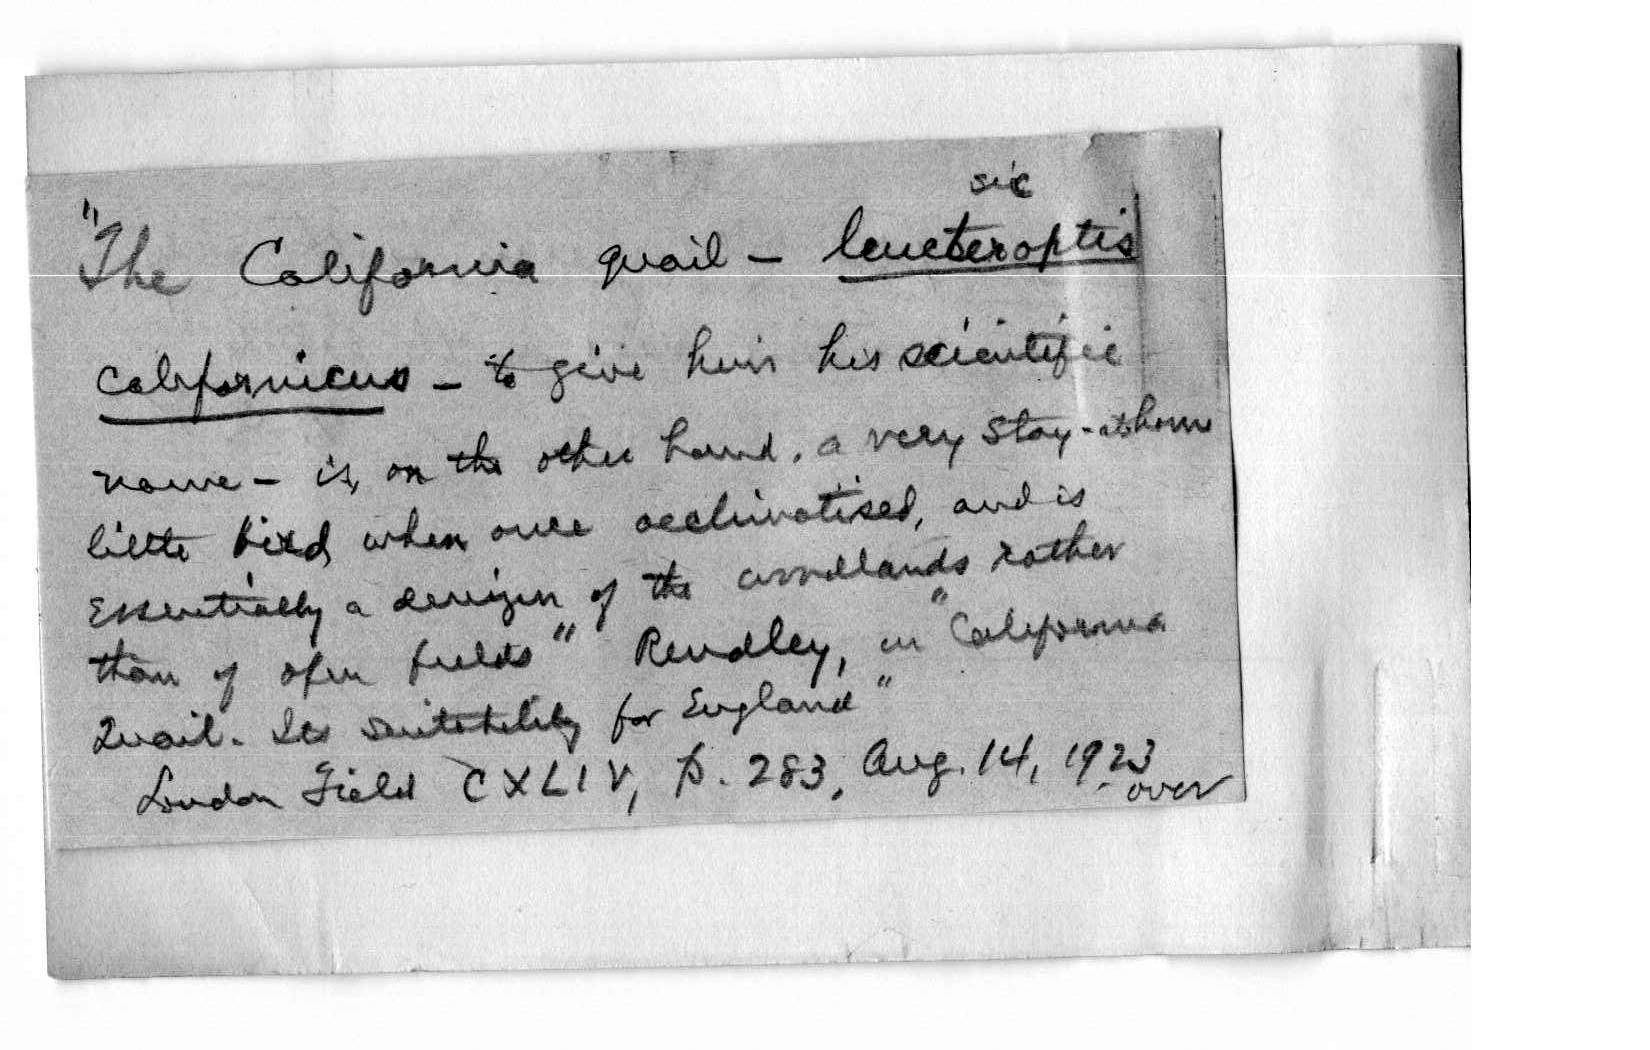 sic
"The California quail - leucteroptis
californicus - to give him his scientific
name - is, on the other hand, a very stay-at-home
little bird, when once acclimatised, and is
essentially a denizen of the woodlands rather
than of open fields" Rendley, in "California
Quail. Its suitability for England"
London Field CXLIV, p. 283, Aug. 14, 1923
over